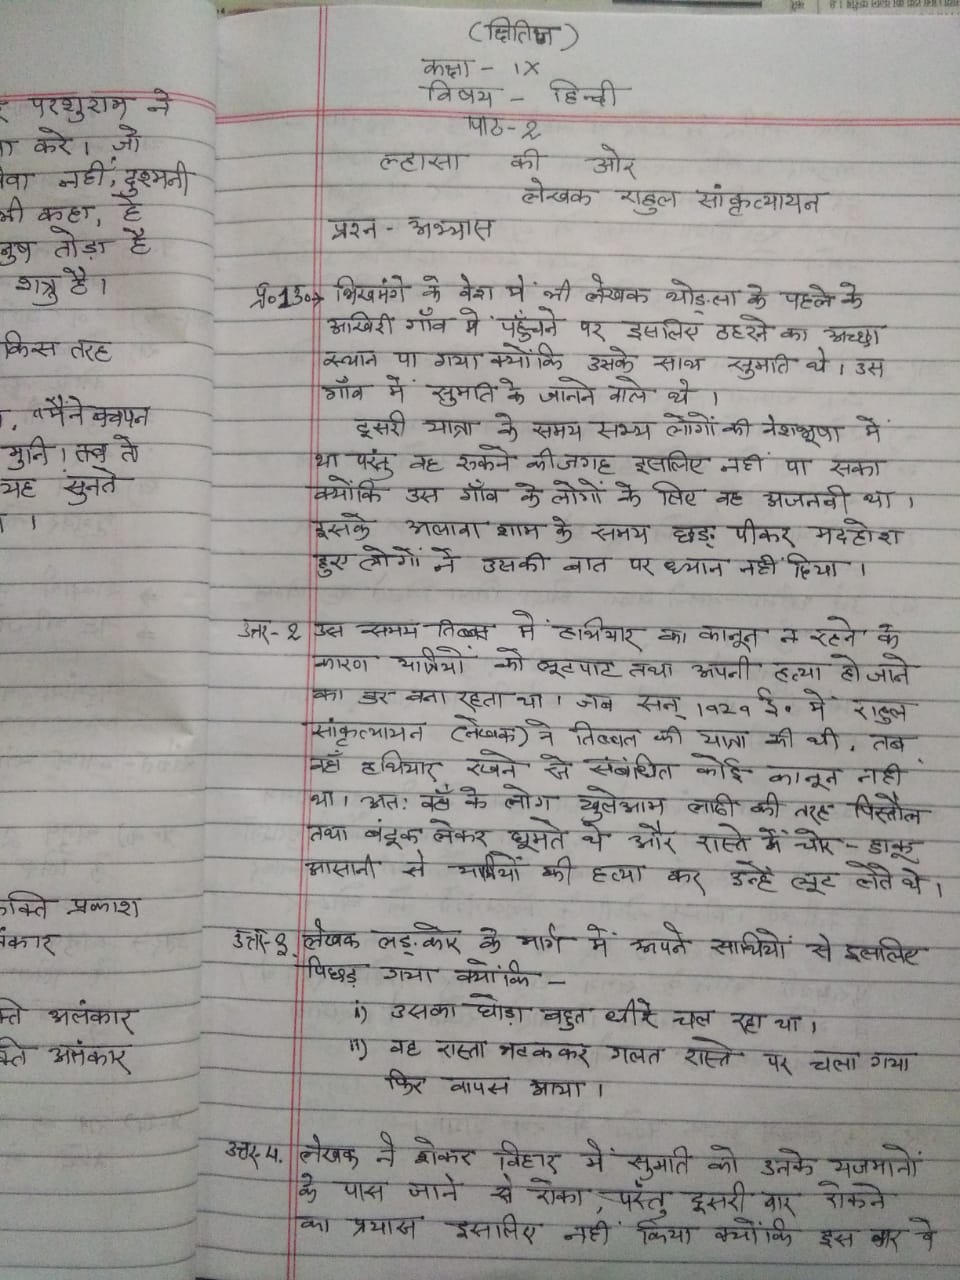 (क्षितिज)
कक्षा - IX
विषय - हिन्दी
पाठ-2
ल्हासा की ओर
लेखक राहुल सांकृत्यायन
प्रश्न - अभ्यास
भिखमंगे के वेश में भी लेखक थोड्ला के पहले के
आखिरी गाँव में पहुँचने पर इसलिए ठहरने का अच्छा
स्थान पा गया क्योंकि उसके साथ सुमति थे। उस
गाँव में सुमति के जानने वाले थे।
दूसरी यात्रा के समय सभ्य लोगों की वेशभूषा में
था परंतु वह रुकने की जगह इसलिए नहीं पा सका
क्योंकि उस गाँव के लोगों के लिए वह अजनबी था।
इसके अलावा शाम के समय छङ् पीकर मदहोश
हुए लोगों ने उसकी बात पर ध्यान नहीं दिया।
उत्तर-2 उस समय तिब्बत में हथियार का कानून न रहने के
कारण यात्रियों को लूटपाट तथा अपनी हत्या हो जाने
का डर बना रहता था। जब सन् १९२९ ई० में राहुल
सांकृत्यायन (लेखक) ने तिब्बत की यात्रा की थी, तब
वहाँ हथियार रखने से संबंधित कोई कानून नहीं
था। अतः वहाँ के लोग खुलेआम लाठी की तरह पिस्तौल
तथा बंदूक लेकर घूमते थे और रास्ते में चोर-डाकू
आसानी से यात्रियों की हत्या कर उन्हें लूट लेते थे।
उत्तर-3. लेखक लङ्कोर के मार्ग में अपने साथियों से इसलिए
पिछड़ गया क्योंकि -
i) उसका घोड़ा बहुत धीरे चल रहा था।
ii) वह रास्ता भटककर गलत रास्ते पर चला गया
फिर वापस आया।
उत्तर-4. लेखक ने शेकर विहार में सुमति को उनके यजमानों
के पास जाने से रोका, परंतु दूसरी बार रोकने
का प्रयास इसलिए नहीं किया क्योंकि इस बार वे
परशुराम ने
करे। जो
नहीं, दुश्मनी
कहा, है
तोड़ा है
शत्रु है।
किस तरह
"मैंने बचपन
मुनि। तब तो
यह सुनते
प्रकाश
अलंकार